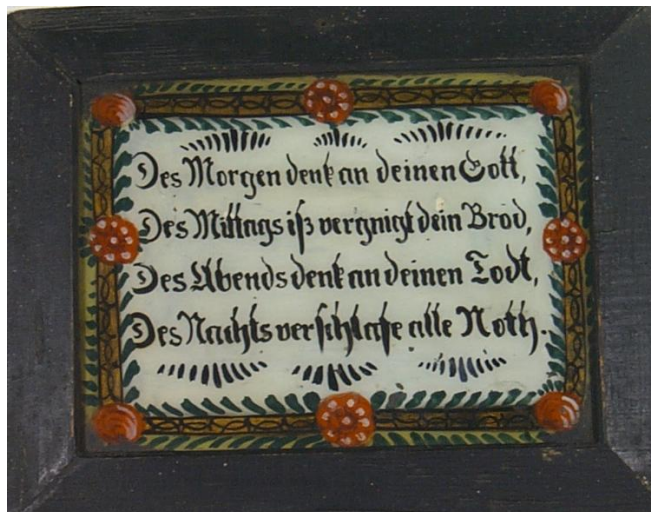 Des Morgen denk an deinen Gott,
Des Mittags iß vergnigt dein Brod,
Des Abends denk an deinen Todt,
Des Nachts verschlafe alle Noth.